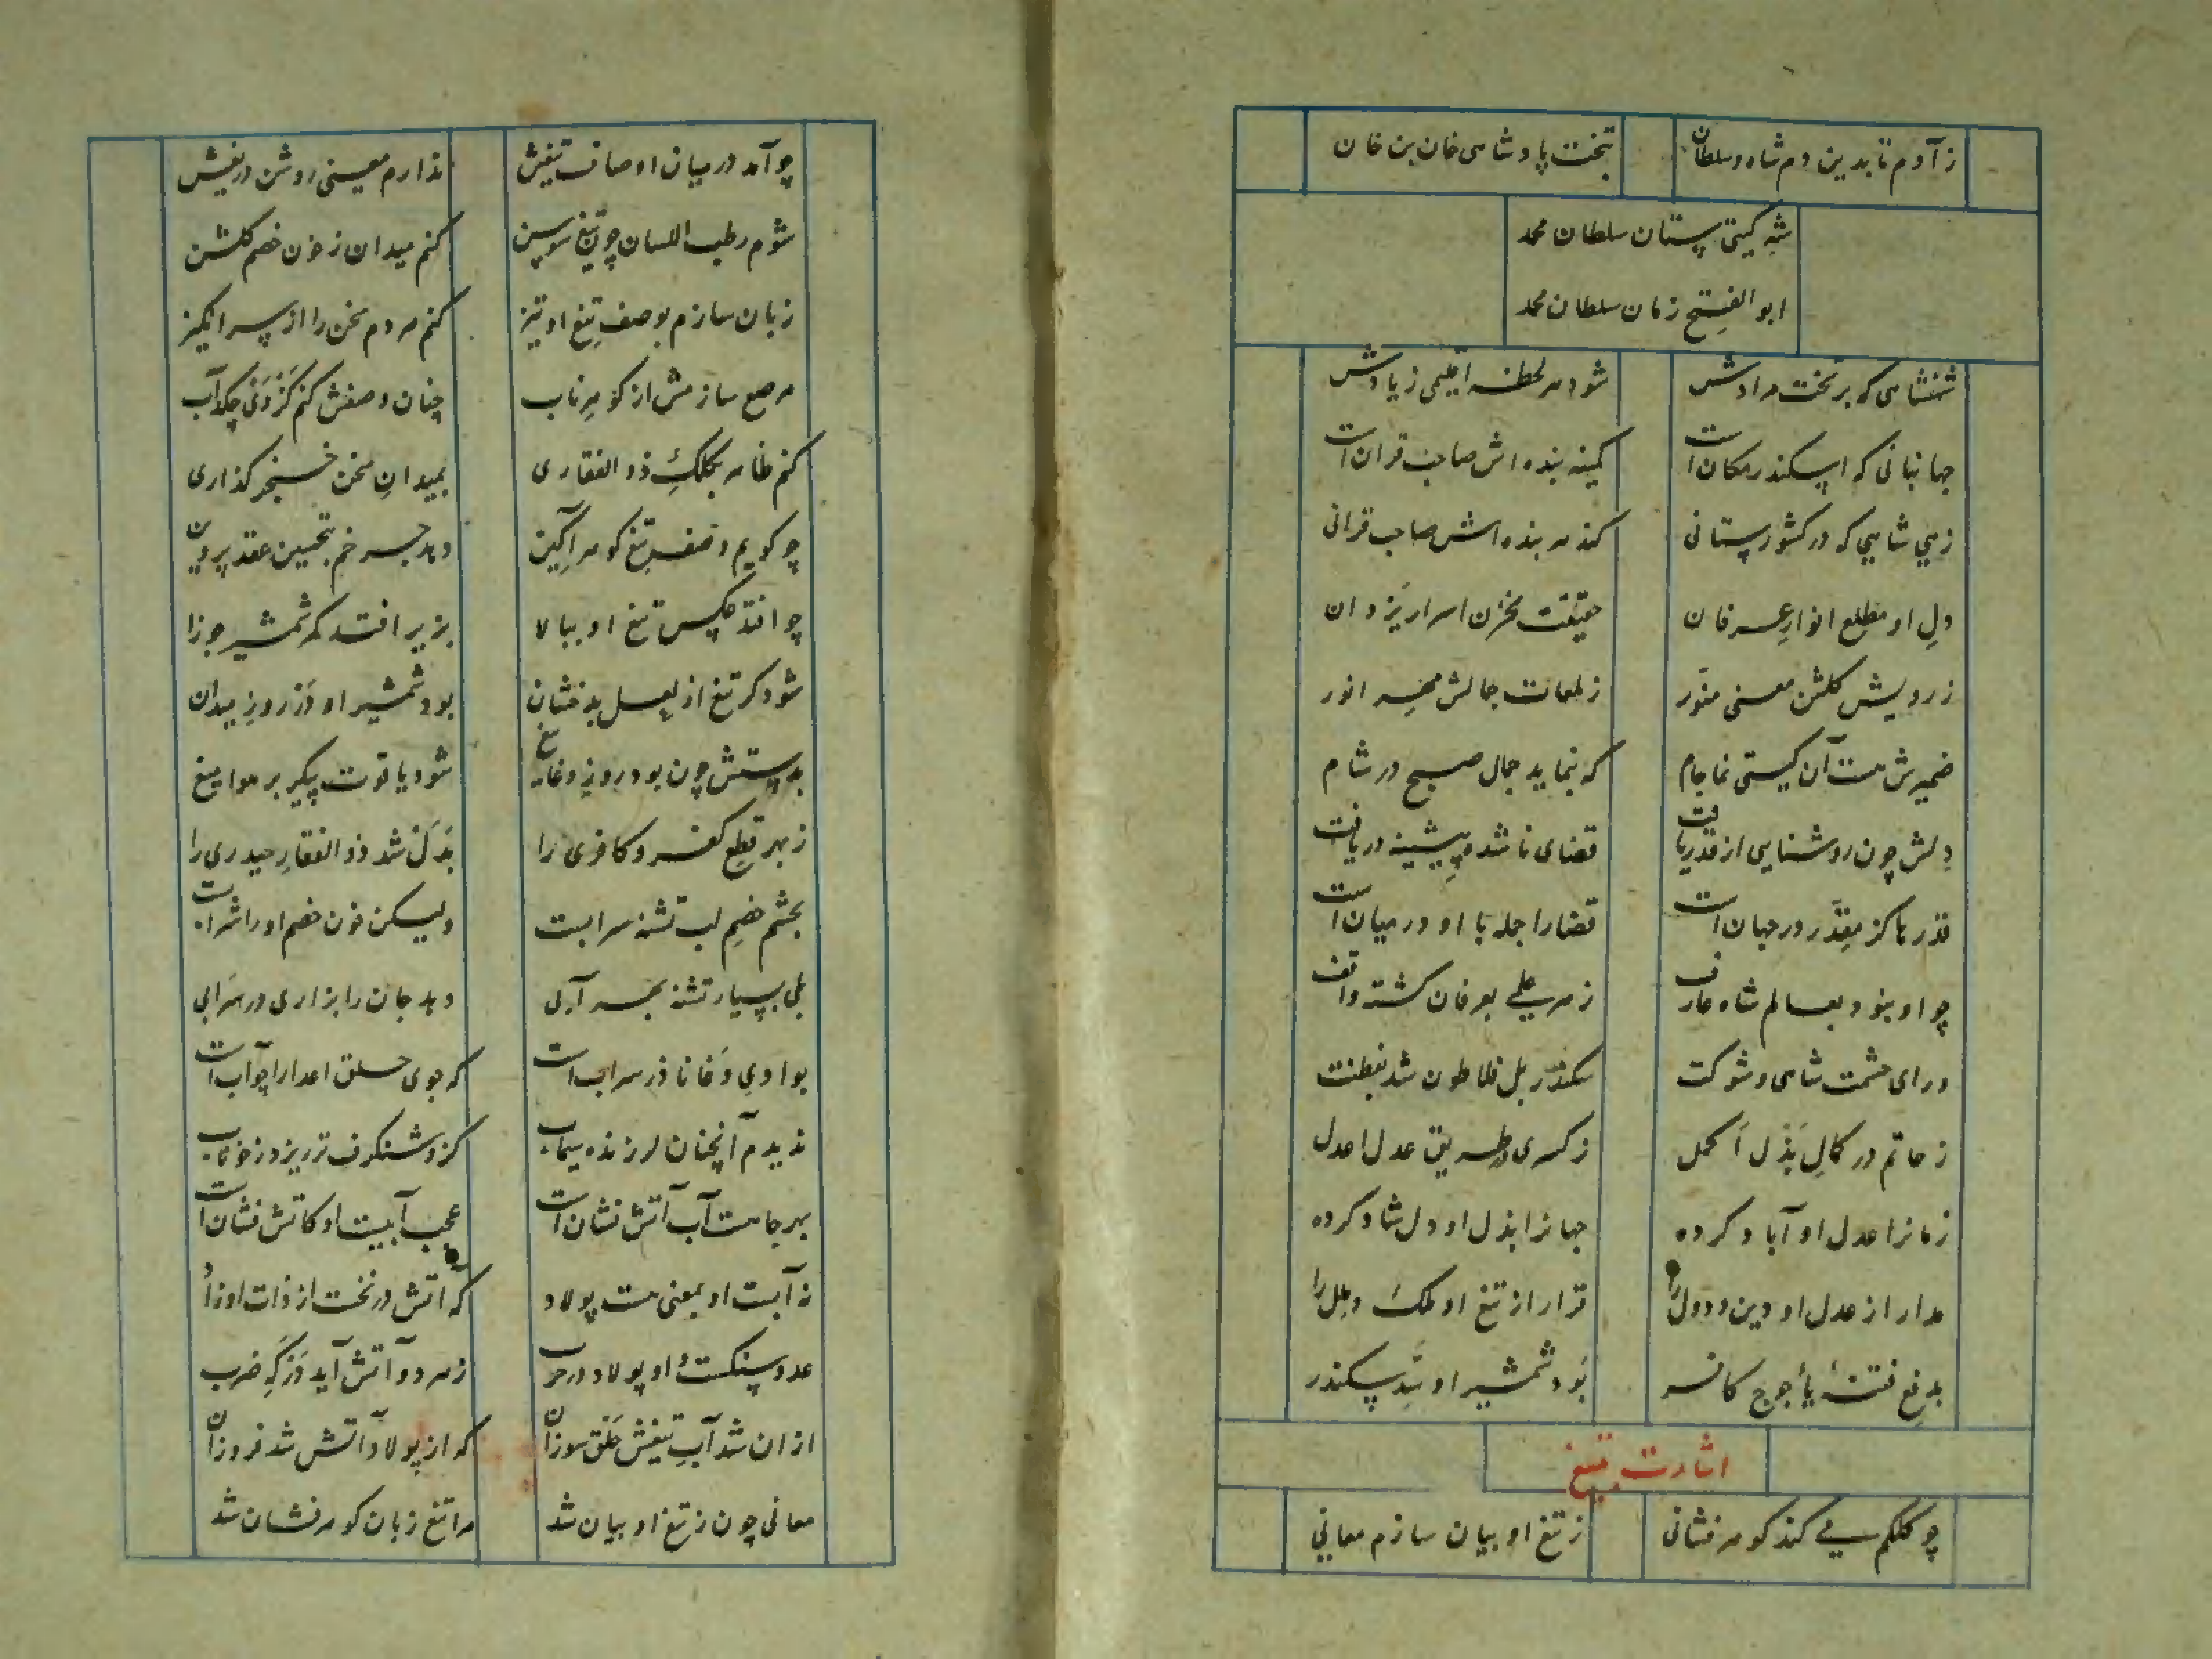 ز آدم تا بدین دم شاه و سلطان
بتخت پادشاهی خان بن خان
شه گیتی ستان سلطان محمد
ابو الفتح زمان سلطان محمد
شهنشاهی که بر تخت مرادش
شود هر لحظه اقلیمی زیادش
جهانبانی که اسکندر مکان است
کمینه بنده اش صاحب قران است
زهی شاهی که در کشور ستانی
کند هر بنده اش صاحب قرانی
دلِ او مطلع انوارِ عرفان
حقیقت مخزن اسرار یزدان
ز رویش گلشن معنی منوّر
ز لمعات جمالش مهر انور
ضمیرش هست آن گیتی نما جام
که بنماید جمال صبح در شام
دلش چون روشنایی از قدر یافت
قضای نا شده پیشینه دریافت
قدر ما کز مقدّر در جهان است
قضا را جمله با او در میان است
چو او نبود بعالم شاه عارف
ز هر علمی بعرفان گشته واقف
ورای حشمت شاهی و شوکت
سکندر بل فلاطون شد بفطنت
ز حاتم در کمالِ بَذل اَکمل
ز کسری در طریق عدل اعدل
زمانرا عدل او آباد کرده
جهانرا بذل او دل شاد کرده
مدار از عدل او دین و دول را
قرار از تیغ او ملک و ملل را
بدفعِ فتنهٔ یأجوج کافر
بَود شمشیر او سَدِّ سکندر
اشارت تیغ
چو کلکم می کند گوهر فشانی
ز تیغ او بیان سازم معانی
چو آمد در میان اوصاف تیغش
ندارم معنی روشن دریغش
شوم رطب اللسان چون تیغ سوسن
کنم میدان ز خون خصم گلشن
زبان سازم بوصفِ تیغ او تیز
کنم مردم سخن را از سر انگیز
مرصع سازمش از گوهر ناب
چنان وصفش کنم کَز وَی چکد آب
کنم ظاهر بکلکِ ذو الفقاری
بمیدانِ سخن خنجر گذاری
چو گویم وصف تیغ گوهر آگین
دهد چرخم بتحسین عقد پروین
چو افتد عکس تیغ او ببالا
بزیر افتد کمر شمشیر جوزا
شود گر تیغ از لعل بدخشان
بود شمشیر او در روزِ میدان
بدستش چون بود روزِ وغا تیغ
شود یاقوت پیکر بر هوا میغ
ز بهر قطع کفر و کافری را
بدَل شد ذو الفقارِ حیدری را
بچشم خصمِ لب تشنه سرابست
ولیکن خون خصم او را شراب است
بلی بسیار تشنه بهر آبی
دهد جان را بزاری در سَرابی
بوادی وَغا نادر سراب است
که جوی حلق اعدا را چو آب است
ندیدم آنچنان لرزنده سیماب
کزو شنگرف تر ریزد ز خوناب
بهر جا هست آب آتش نشان است
عجب آبیست او کاتش فشان است
نه آبست او بمعنی هست پولاد
که آتش در نخست از ذات او زاد
عدو سنگست و او پولاد در حرب
ز هر دو آتش آید در گهِ ضرب
از ان شد آبِ تیغش خلق سوزان
که از پولاد آتش شد فروزان
معانی چون ز تیغ او بیان شد
مرا تیغ زبان گوهر فشان شد